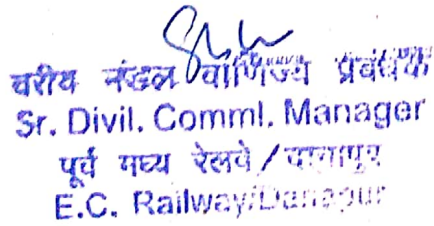 वरीय मंडल वाणिज्य प्रबंधक
Sr. Divil. Comml. Manager
पूर्व मध्य रेलवे / दानापुर
E.C. Railway/Danapur